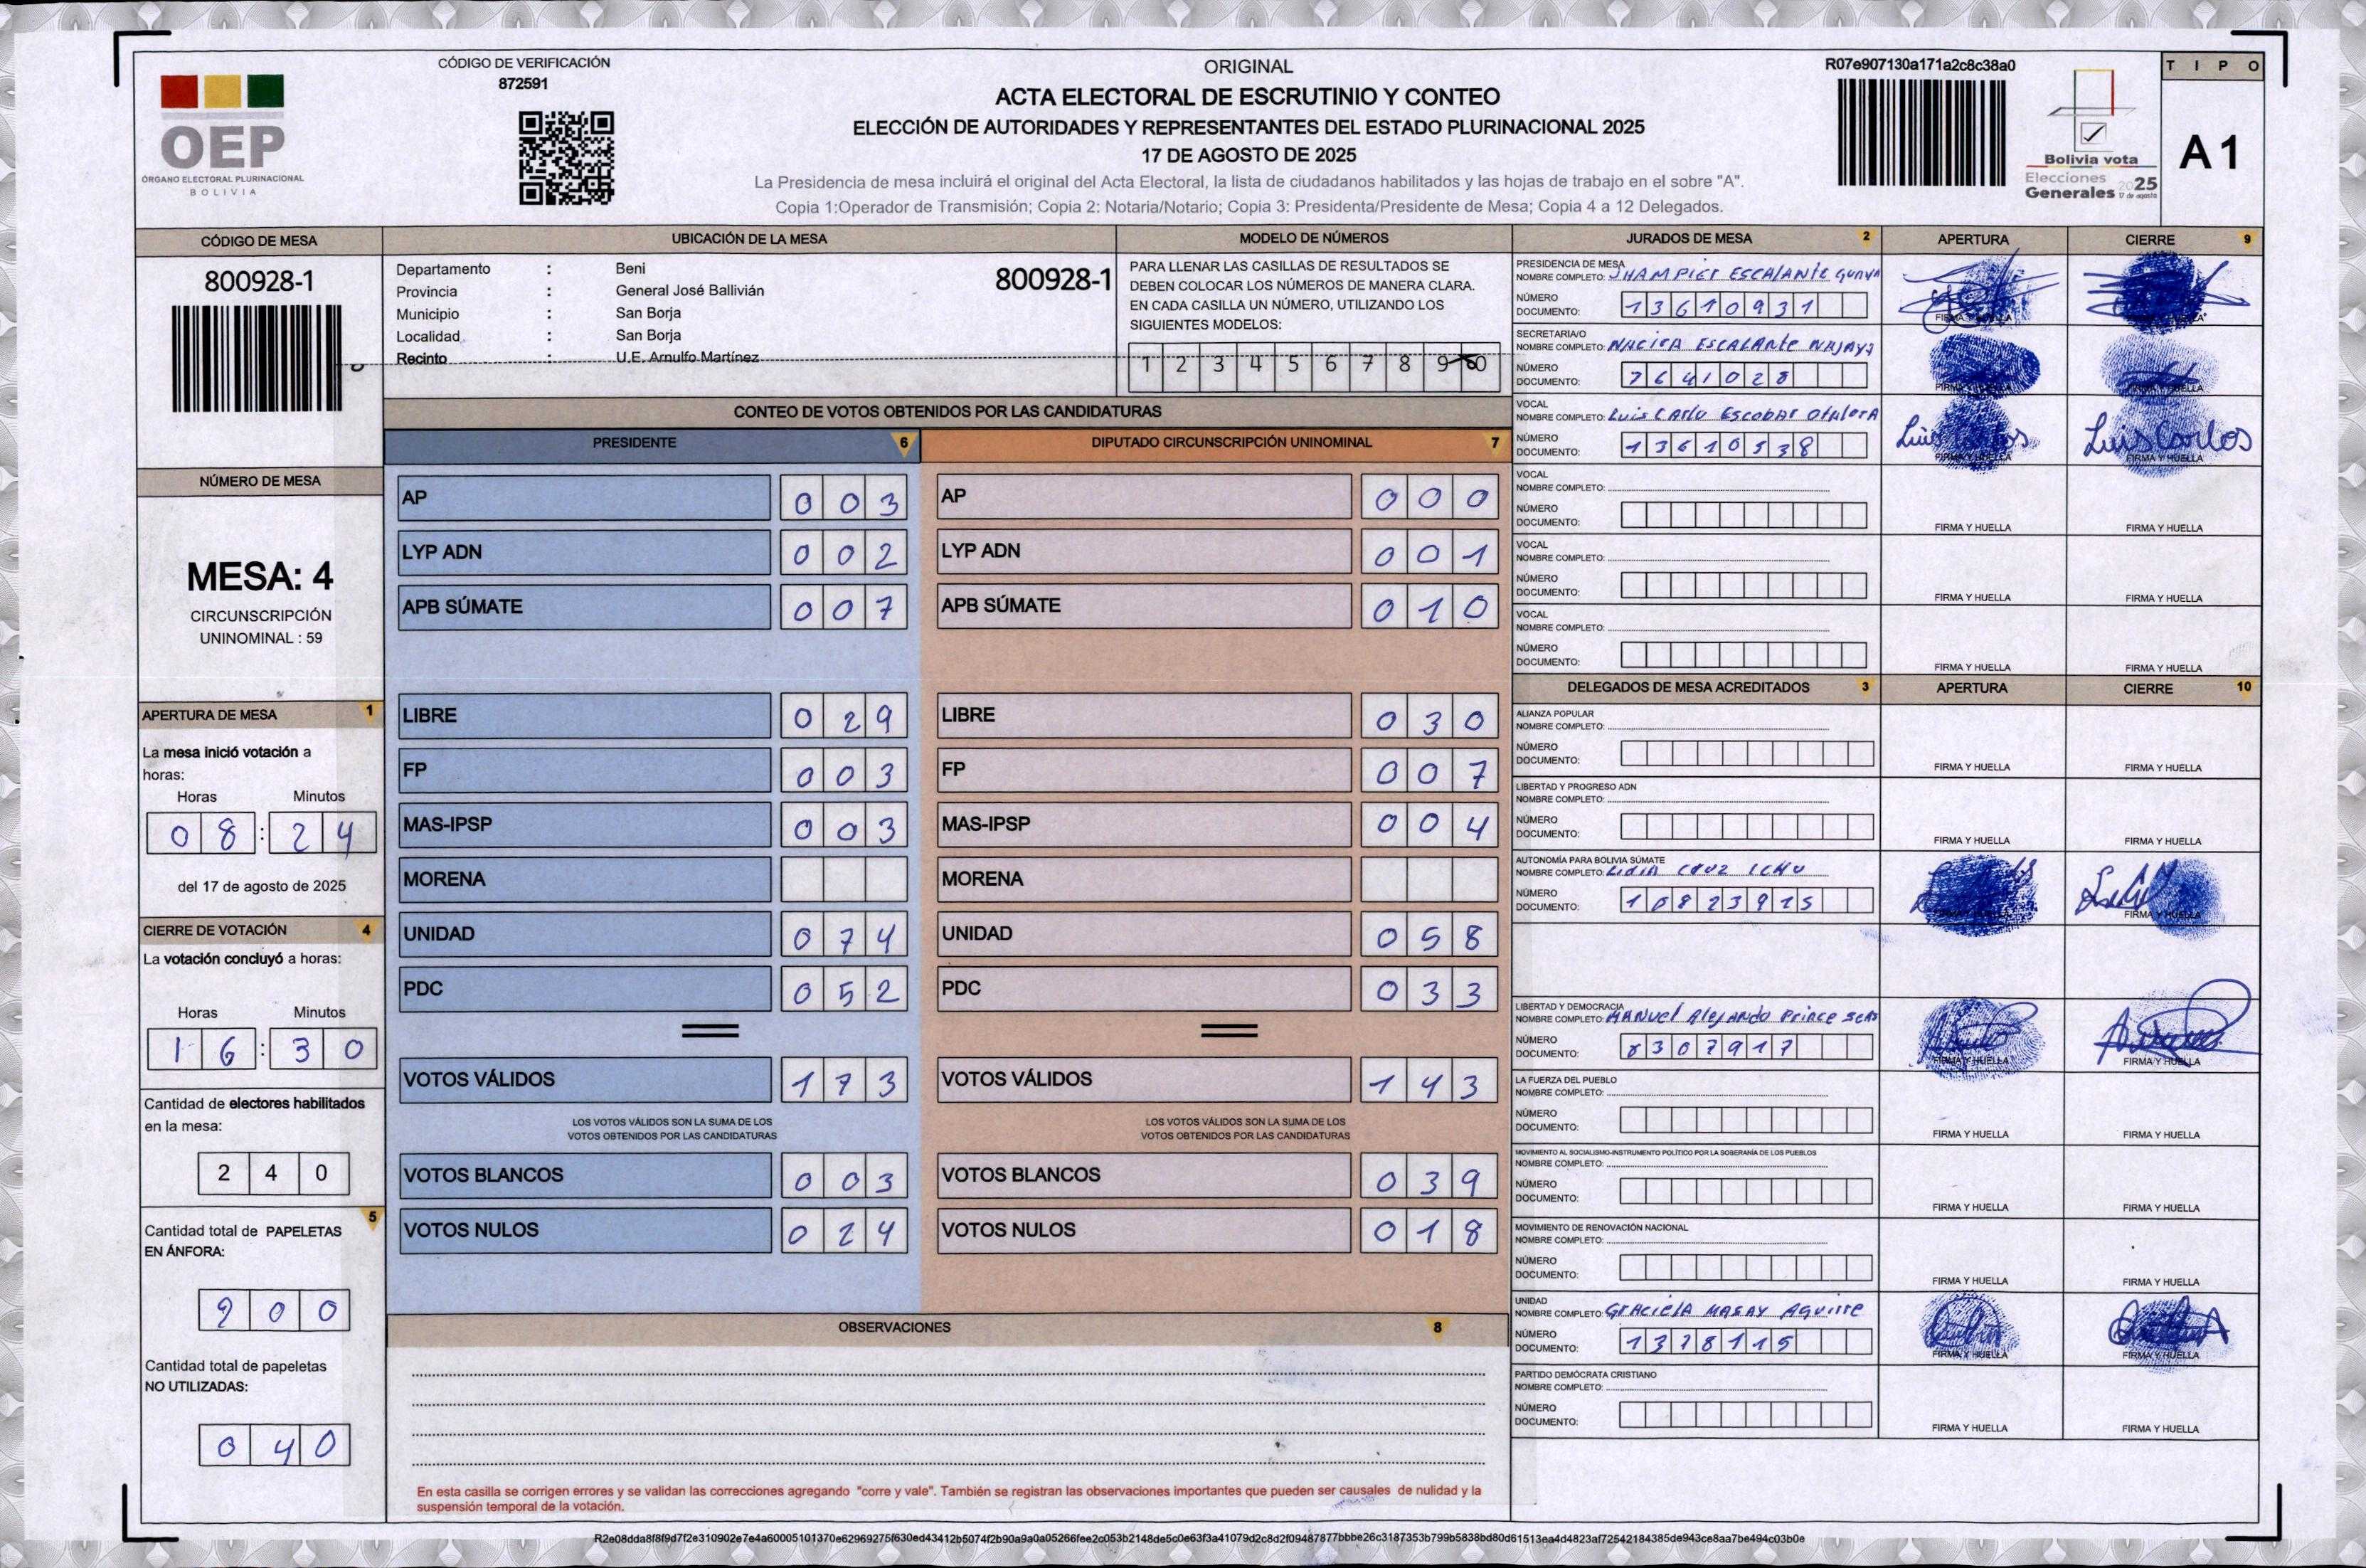 CÓDIGO DE VERIFICACIÓN
872591
OEP
ÓRGANO ELECTORAL PLURINACIONAL
BOLIVIA
ORIGINAL
ACTA ELECTORAL DE ESCRUTINIO Y CONTEO
ELECCIÓN DE AUTORIDADES Y REPRESENTANTES DEL ESTADO PLURINACIONAL 2025
17 DE AGOSTO DE 2025
La Presidencia de mesa incluirá el original del Acta Electoral, la lista de ciudadanos habilitados y las hojas de trabajo en el sobre "A".
Copia 1:Operador de Transmisión; Copia 2: Notaria/Notario; Copia 3: Presidenta/Presidente de Mesa; Copia 4 a 12 Delegados.
R07e907130a171a2c8c38a0
Bolivia vota
Elecciones
Generales 2025
17 de agosto
TIPO
A1
CÓDIGO DE MESA
800928-1
UBICACIÓN DE LA MESA
Departamento : Beni
Provincia : General José Ballivián
Municipio : San Borja
Localidad : San Borja
Recinto : U.E. Arnulfo Martínez
800928-1
MODELO DE NÚMEROS
PARA LLENAR LAS CASILLAS DE RESULTADOS SE
DEBEN COLOCAR LOS NÚMEROS DE MANERA CLARA.
EN CADA CASILLA UN NÚMERO, UTILIZANDO LOS
SIGUIENTES MODELOS:
1 2 3 4 5 6 7 8 9 0
NÚMERO DE MESA
MESA: 4
CIRCUNSCRIPCIÓN
UNINOMINAL : 59
APERTURA DE MESA 1
La mesa inició votación a
horas:
Horas Minutos
08 : 24
del 17 de agosto de 2025
CIERRE DE VOTACIÓN 4
La votación concluyó a horas:
Horas Minutos
16 : 30
Cantidad de electores habilitados
en la mesa:
240
5
Cantidad total de PAPELETAS
EN ÁNFORA:
200
Cantidad total de papeletas
NO UTILIZADAS:
040
CONTEO DE VOTOS OBTENIDOS POR LAS CANDIDATURAS
PRESIDENTE 6
AP 003
LYP ADN 002
APB SÚMATE 007
LIBRE 029
FP 003
MAS-IPSP 003
MORENA
UNIDAD 074
PDC 052
VOTOS VÁLIDOS 173
LOS VOTOS VÁLIDOS SON LA SUMA DE LOS
VOTOS OBTENIDOS POR LAS CANDIDATURAS
VOTOS BLANCOS 003
VOTOS NULOS 024
DIPUTADO CIRCUNSCRIPCIÓN UNINOMINAL 7
AP 000
LYP ADN 001
APB SÚMATE 010
LIBRE 030
FP 007
MAS-IPSP 004
MORENA
UNIDAD 058
PDC 033
VOTOS VÁLIDOS 143
LOS VOTOS VÁLIDOS SON LA SUMA DE LOS
VOTOS OBTENIDOS POR LAS CANDIDATURAS
VOTOS BLANCOS 039
VOTOS NULOS 018
OBSERVACIONES 8
En esta casilla se corrigen errores y se validan las correcciones agregando "corre y vale". También se registran las observaciones importantes que pueden ser causales de nulidad y la
suspensión temporal de la votación.
JURADOS DE MESA 2 APERTURA CIERRE 9
PRESIDENCIA DE MESA
NOMBRE COMPLETO: JHAMPIER ESCALANTE
NÚMERO
DOCUMENTO: 13610931
FIRMA Y HUELLA FIRMA Y HUELLA
SECRETARIA/O
NOMBRE COMPLETO: ESCALANTE
NÚMERO
DOCUMENTO: 7641028
FIRMA Y HUELLA FIRMA Y HUELLA
VOCAL
NOMBRE COMPLETO: Luis CARLO Escobar OtalorA
NÚMERO
DOCUMENTO: 13610538
Luis Carlos Luis Carlos
FIRMA Y HUELLA FIRMA Y HUELLA
VOCAL
NOMBRE COMPLETO:
NÚMERO
DOCUMENTO:
FIRMA Y HUELLA FIRMA Y HUELLA
VOCAL
NOMBRE COMPLETO:
NÚMERO
DOCUMENTO:
FIRMA Y HUELLA FIRMA Y HUELLA
VOCAL
NOMBRE COMPLETO:
NÚMERO
DOCUMENTO:
FIRMA Y HUELLA FIRMA Y HUELLA
DELEGADOS DE MESA ACREDITADOS 3 APERTURA CIERRE 10
ALIANZA POPULAR
NOMBRE COMPLETO:
NÚMERO
DOCUMENTO:
FIRMA Y HUELLA FIRMA Y HUELLA
LIBERTAD Y PROGRESO ADN
NOMBRE COMPLETO:
NÚMERO
DOCUMENTO:
FIRMA Y HUELLA FIRMA Y HUELLA
AUTONOMÍA PARA BOLIVIA SÚMATE
NOMBRE COMPLETO: Lidia cruz ICHU
NÚMERO
DOCUMENTO: 10823915
FIRMA Y HUELLA FIRMA Y HUELLA
LIBERTAD Y DEMOCRACIA
NOMBRE COMPLETO: MANuel AlejANdo Prince
NÚMERO
DOCUMENTO: 8307917
FIRMA Y HUELLA FIRMA Y HUELLA
LA FUERZA DEL PUEBLO
NOMBRE COMPLETO:
NÚMERO
DOCUMENTO:
FIRMA Y HUELLA FIRMA Y HUELLA
MOVIMIENTO AL SOCIALISMO-INSTRUMENTO POLÍTICO POR LA SOBERANÍA DE LOS PUEBLOS
NOMBRE COMPLETO:
NÚMERO
DOCUMENTO:
FIRMA Y HUELLA FIRMA Y HUELLA
MOVIMIENTO DE RENOVACIÓN NACIONAL
NOMBRE COMPLETO:
NÚMERO
DOCUMENTO:
FIRMA Y HUELLA FIRMA Y HUELLA
UNIDAD
NOMBRE COMPLETO: GrACielA MASAY Aguirre
NÚMERO
DOCUMENTO: 1378115
FIRMA Y HUELLA FIRMA Y HUELLA
PARTIDO DEMÓCRATA CRISTIANO
NOMBRE COMPLETO:
NÚMERO
DOCUMENTO:
FIRMA Y HUELLA FIRMA Y HUELLA